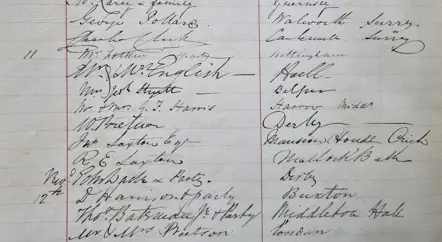 & family Guernsey
George Pollard Walworth Surrey
Charles Clark Camberwell Surrey
11 Mr party Nottingham
Mr & Mrs English — Hull —
Mrs Hyatt — Belper
Mr & Mrs G. F. Harris Harrow Middx
W. Derby —
Jno Saxton Esq Mansion House Crich
R. E. Saxton Matlock Bath
& Party. Derby
12 D Harrison & party Buxton
Thos Bateman Jr & Party Middleton Hall
Mr & Mrs London